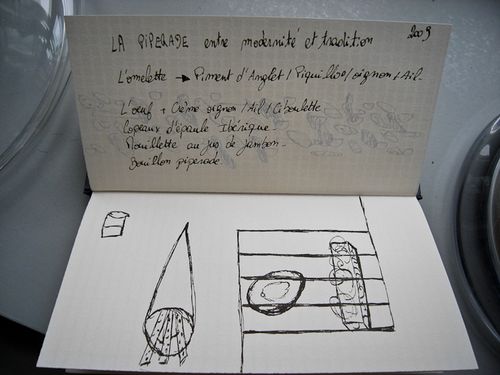 LA PIPERADE entre modernité et tradition 2009
L'omelette → Piment d'Anglet / Piquillos / oignon / Ail.
L'œuf + Crème oignon / Ail / Ciboulette
Copeaux d'épaule Ibérique.
Mouillette au jus de jambon.
Bouillon piperade.